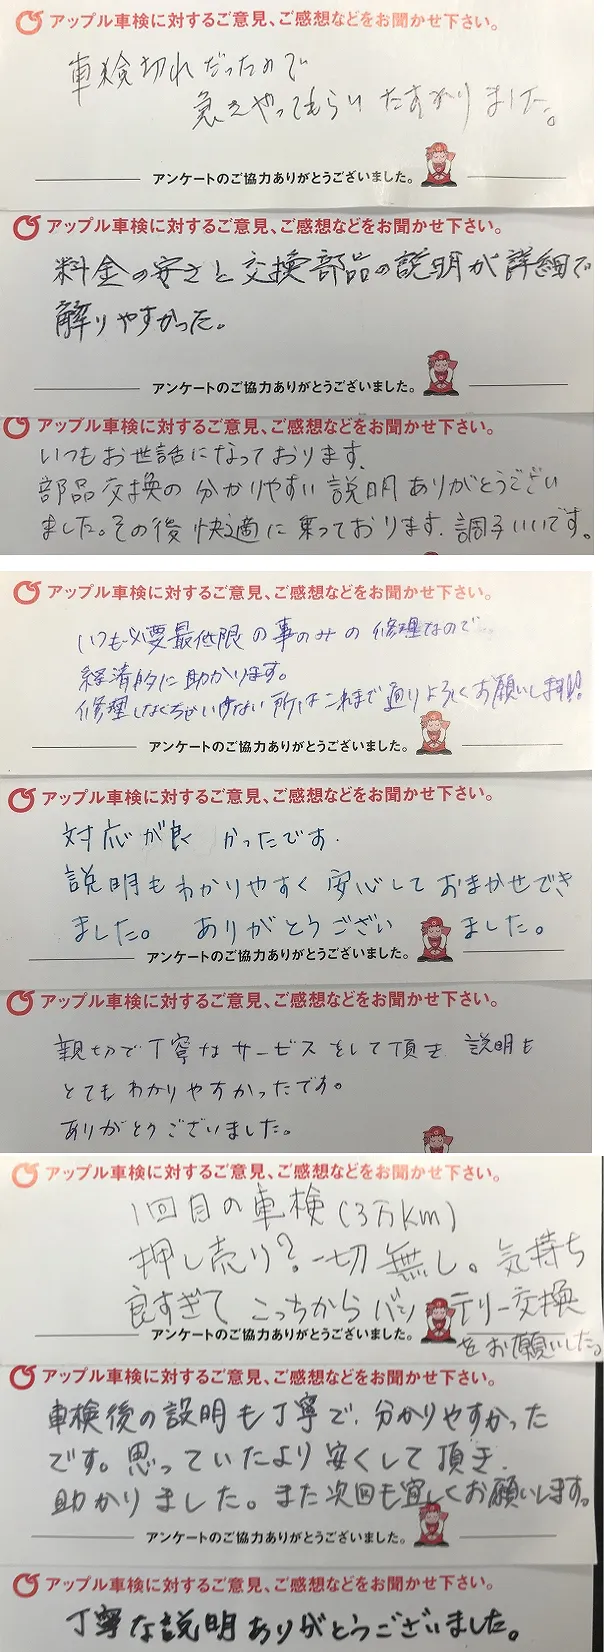 アップル車検に対するご意見、ご感想などをお聞かせ下さい。
車検切れだったので
急きやってもらいたすかりました。
アンケートのご協力ありがとうございました。
アップル車検に対するご意見、ご感想などをお聞かせ下さい。
料金の安さと交換部品の説明が詳細で
解りやすかった。
アンケートのご協力ありがとうございました。
アップル車検に対するご意見、ご感想などをお聞かせ下さい。
いつもお世話になっております.
部品交換の分かりやすい説明ありがとうござい
ました。その後快適に乗っております.調子いいです。
アップル車検に対するご意見、ご感想などをお聞かせ下さい。
いつも必要最低限の事のみの修理なので
経済的に助かります。
修理しなくちゃいけない所はこれまで通りよろしくお願いします!!
アンケートのご協力ありがとうございました。
アップル車検に対するご意見、ご感想などをお聞かせ下さい。
対応が良かったです.
説明もわかりやすく安心しておまかせでき
ました。ありがとうございました。
アンケートのご協力ありがとうございました。
アップル車検に対するご意見、ご感想などをお聞かせ下さい。
親切で丁寧なサービスをして頂き説明も
とてもわかりやすかったです。
ありがとうございました。
アップル車検に対するご意見、ご感想などをお聞かせ下さい。
1回目の車検(3万km)
押し売り?一切無し。気持ち
良すぎてこっちからバッテリー交換
をお願いした。
アンケートのご協力ありがとうございました。
アップル車検に対するご意見、ご感想などをお聞かせ下さい。
車検後の説明も丁寧で、分かりやすかった
です。思っていたより安くして頂き、
助かりました。また次回も宜しくお願いします。
アンケートのご協力ありがとうございました。
アップル車検に対するご意見、ご感想などをお聞かせ下さい。
丁寧な説明ありがとうございました。